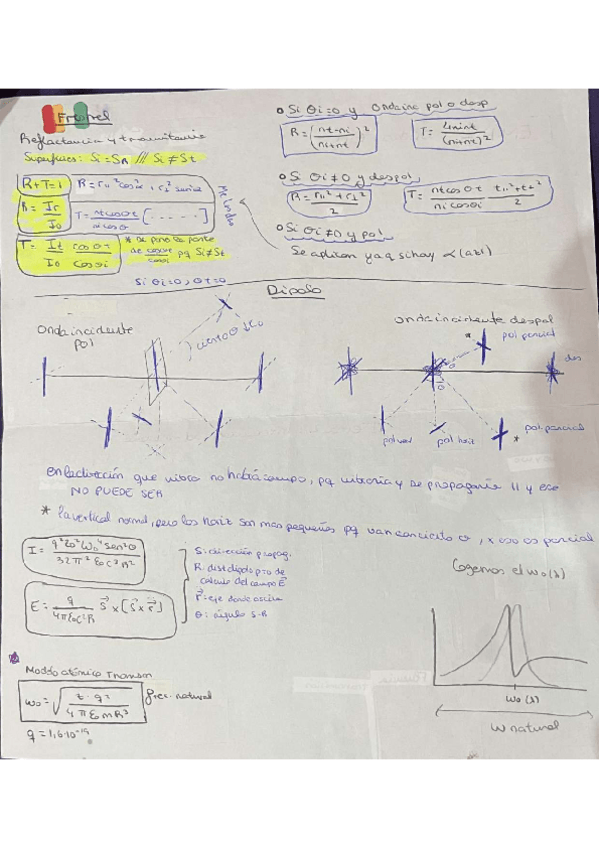 Fresnel
Reflactancia y transmitancia
Superficies: Si = SR /// Si ≠ St
R+T=1
R = r₁₁² cos²α + r⊥² sen²α
R = Ir / I₀
T = nt cosθt / ni cosθi [......]
T = It cosθt / I₀ cosθi
* Se pone la parte
de cosθt / cosθi pq Si≠St
Si θi=0, θt=0
o Si θi=0 y Onda inc pol o desp
R = ((nt-ni) / (ni+nt))²
T = 4nint / (ni+nt)²
o Si θi≠0 y despol.
R = (r₁₁² + r⊥²) / 2
T = nt cosθt / ni cosθi · (t₁₁² + t⊥²) / 2
o Si θi≠0 y pol
Se aplican ya q si hay α (azi)
Dipolo
Onda incidente
pol
Onda incidente despol
* pol parcial
pol vert
pol horiz
pol. parcial
*
en la dirección que vibra no habrá campo, pq vibraría y se propagaría 11 y eso
NO PUEDE SER
* la vertical normal, pero los horiz son mas pequeños pq van con cierto θ, x eso es parcial
I = q² z₀² ω₀⁴ sen²θ / 32π² ε₀ c³ R²
S: dirección propag.
R: dist dipolo pto de
calculo del campo E⃗
r⃗: eje donde oscila
θ: ángulo S-R
E = q / 4πε₀c²R S⃗ × [S⃗ × r⃗]
Cogemos el ω₀(s)
ω₀(s)
ω natural
Modelo atómico Thomson
ω₀ = √(z · q² / 4πε₀mR³)
frec. natural
q = 1,6·10⁻¹⁹